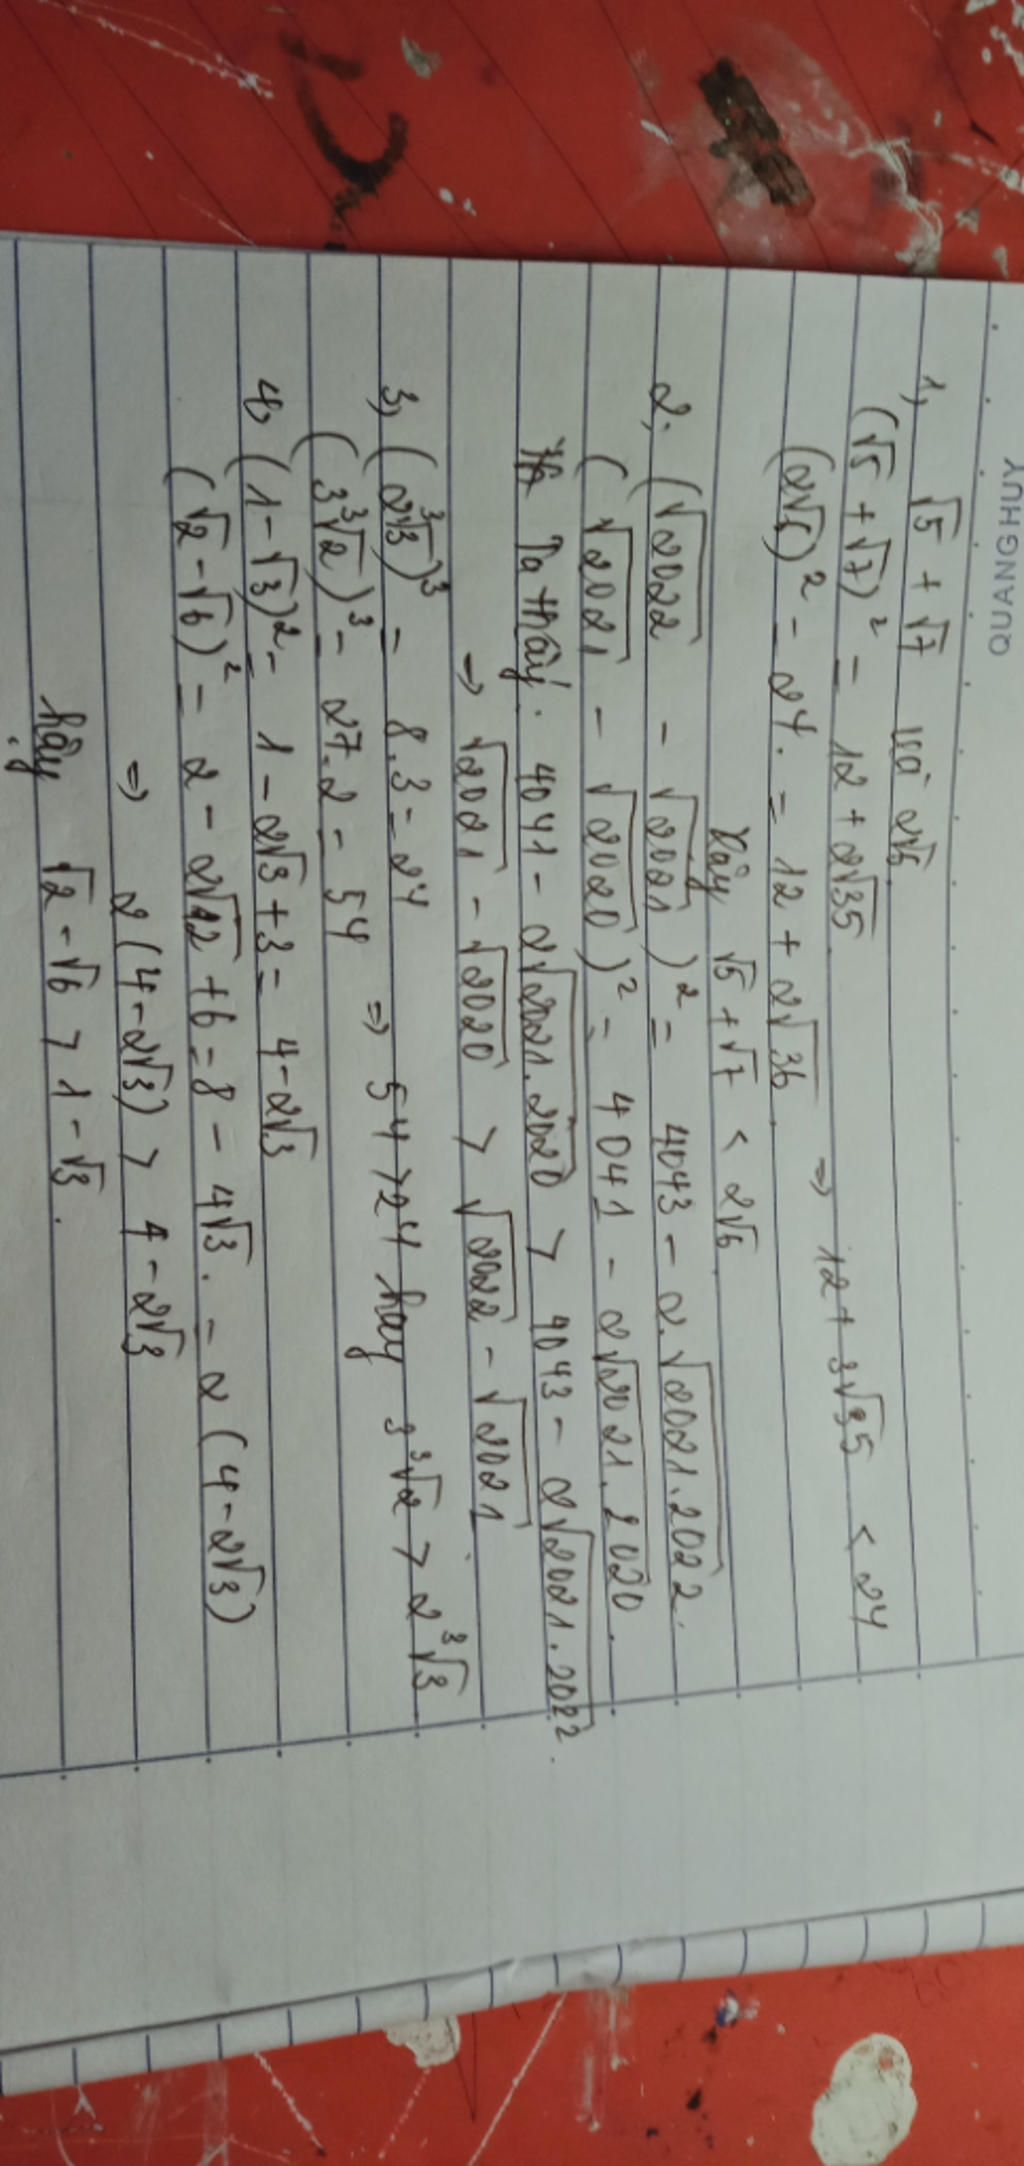 QUANG HUY
1, √5 + √7 và 2√6
(√5 + √7)² = 12 + 2√35
(2√6)² = 24. = 12 + 2√36 ⇒ 12 + 3√35 < 24
Vậy √5 + √7 < 2√6
2, (√2022 - √2021)² = 4043 - 2.√2021.2022.
(√2021 - √2020)² = 4041 - 2√2021.2020.
Ta thấy: 4041 - 2√2021.2020 > 4043 - 2√2021.2022.
⇒ √2021 - √2020 > √2022 - √2021
3, (2∛3)³ = 8.3 = 24
(3∛2)³ = 27.2 = 54 ⇒ 54 > 24 hay 3∛2 > 2∛3
4, (1 - √3)² = 1 - 2√3 + 3 = 4 - 2√3
(√2 - √6)² = 2 - 2√12 + 6 = 8 - 4√3. = 2(4 - 2√3)
⇒ 2(4 - 2√3) > 4 - 2√3
hay √2 - √6 > 1 - √3.